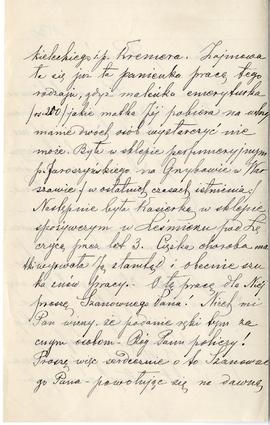 kieleckiego i p. Kremera. Zajmowa
ła się już ta panienka pracą tego
rodzaju, gdyż maleńka emeryturka
jakie matka Jej pobiera na utrzy
manie dwóch osób wystarczyć nie
może. Była w sklepie perfumeryjnym
p. Jaroszyńskiego na Grzybowie w War
szawie w ostatnich czasach istnienia.
Następnie była Kasjerką w sklepie
spożywczym w Leśmierzu pod Łę
czycą przez lat 3. Ciężka choroba ma
tki wyrwała Ją stamtąd i obecnie szu
ka znów pracy. O tę pracę dla Niej
proszę Szanownego Pana! Niech mi
Pan wierzy, że podanie ręki tym za
cnym osobom - Bóg Panu policzy!
Proszę więc serdecznie o to Szanowne
go Pana - powołując się na dawną